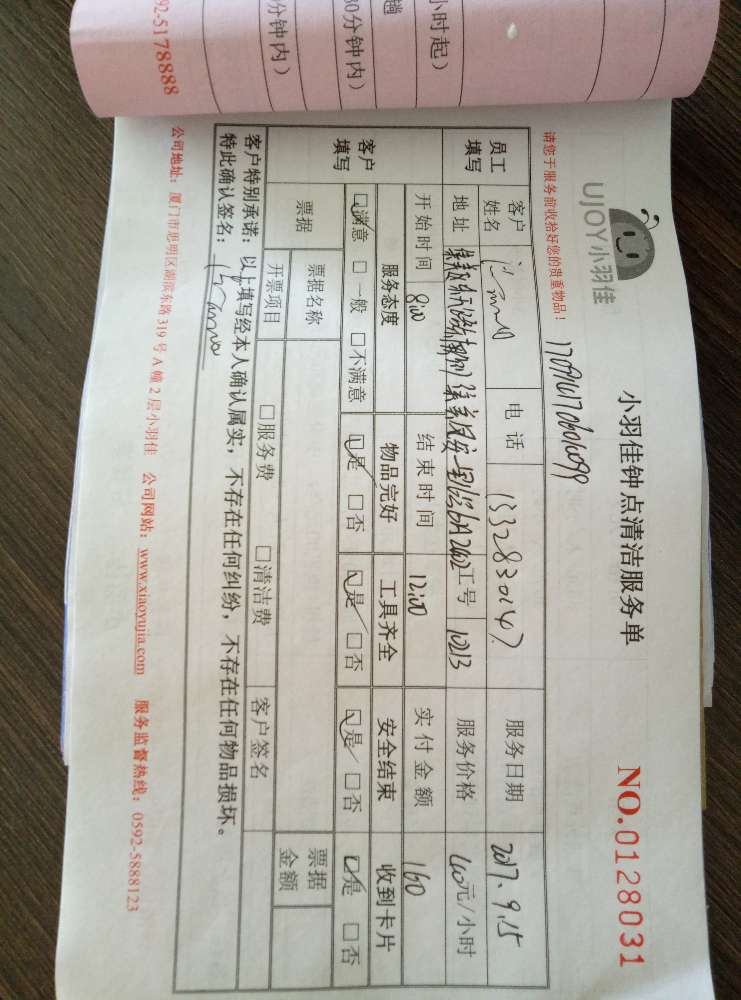 UJOY小羽佳
小羽佳钟点清洁服务单
NO.0128031
请您于服务前收拾好您的贵重物品！
员工填写 客户姓名 电话 1332830147 服务日期 2017.9.15
地址 工号 1013 服务价格 40元/小时
开始时间 8:00 结束时间 12:00 实付金额 160
客户填写 服务态度 物品完好 工具齐全 安全结束 收到卡片
☑满意 □一般 □不满意 ☑是 □否 ☑是 □否 ☑是 □否 ☑是 □否
票据 票据名称 票据金额
开票项目 □服务费 □清洁费 客户签名
客户特别承诺：以上填写经本人确认属实，不存在任何纠纷，不存在任何物品损坏。
特此确认签名：
公司地址：厦门市思明区湖滨东路319号A幢2层小羽佳 公司网站：www.xiaoyujia.com 服务监督热线：0592-5888123
小时起）
趟
30分钟内）
分钟内）
92-5178888